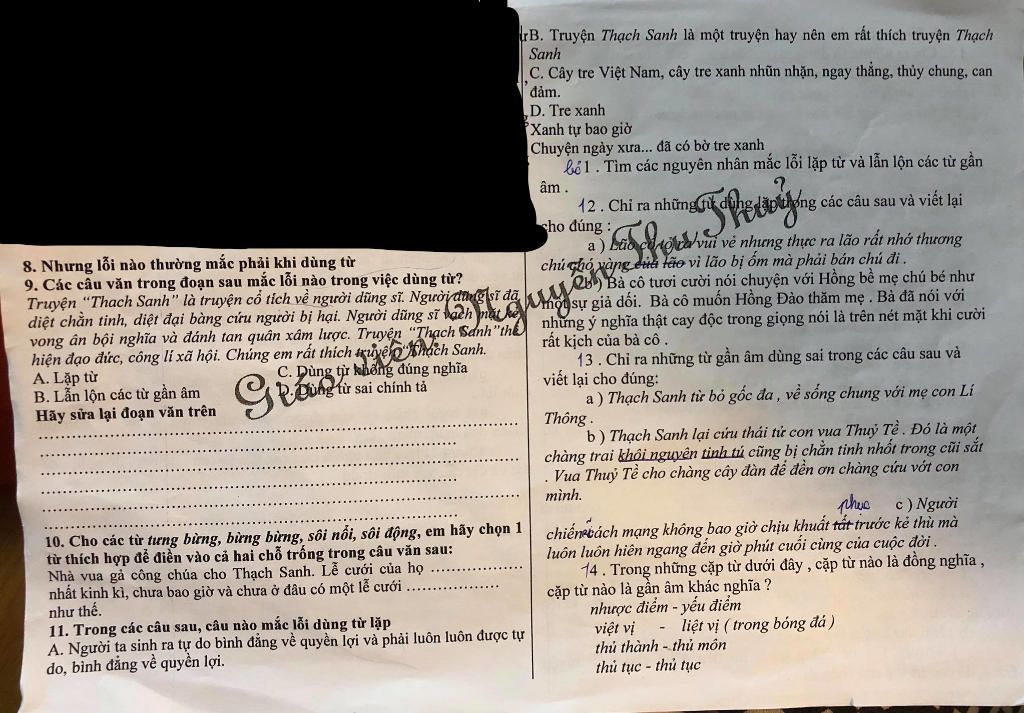 8. Nhưng lỗi nào thường mắc phải khi dùng từ
9. Các câu văn trong đoạn sau mắc lỗi nào trong việc dùng từ?
Truyện “Thạch Sanh” là truyện cổ tích về người dũng sĩ. Người dũng sĩ đã
diệt chằn tinh, diệt đại bàng cứu người bị hại. Người dũng sĩ vạch mặt kẻ
vong ân bội nghĩa và đánh tan quân xâm lược. Truyện “Thạch Sanh”thể
hiện đạo đức, công lí xã hội. Chúng em rất thích truyện “Thạch Sanh.
A. Lặp từ C. Dùng từ không đúng nghĩa
B. Lẫn lộn các từ gần âm D. Dùng từ sai chính tả
Hãy sửa lại đoạn văn trên
10. Cho các từ tưng bừng, bừng bừng, sôi nổi, sôi động, em hãy chọn 1
từ thích hợp để điền vào cả hai chỗ trống trong câu văn sau:
Nhà vua gả công chúa cho Thạch Sanh. Lễ cưới của họ ....................
nhất kinh kì, chưa bao giờ và chưa ở đâu có một lễ cưới ...................
như thế.
11. Trong các câu sau, câu nào mắc lỗi dùng từ lặp
A. Người ta sinh ra tự do bình đẳng về quyền lợi và phải luôn luôn được tự
do, bình đẳng về quyền lợi.
B. Truyện Thạch Sanh là một truyện hay nên em rất thích truyện Thạch
Sanh
C. Cây tre Việt Nam, cây tre xanh nhũn nhặn, ngay thẳng, thủy chung, can
đảm.
D. Tre xanh
Xanh tự bao giờ
Chuyện ngày xưa... đã có bờ tre xanh
1 . Tìm các nguyên nhân mắc lỗi lặp từ và lẫn lộn các từ gần
âm .
12 . Chỉ ra những từ dùng lặp trong các câu sau và viết lại
cho đúng :
a ) Lão cố tỏ ra vui vẻ nhưng thực ra lão rất nhớ thương
chú chó vàng của lão vì lão bị ốm mà phải bán chú đi .
b ) Bà cô tươi cười nói chuyện với Hồng bề mẹ chú bé như
một sự giả dối. Bà cô muốn Hồng Đào thăm mẹ . Bà đã nói với
những ý nghĩa thật cay độc trong giọng nói là trên nét mặt khi cười
rất kịch của bà cô .
13 . Chỉ ra những từ gần âm dùng sai trong các câu sau và
viết lại cho đúng:
a ) Thạch Sanh từ bỏ gốc đa , về sống chung với mẹ con Lí
Thông .
b ) Thạch Sanh lại cứu thái tử con vua Thuỷ Tề . Đó là một
chàng trai khôi nguyên tinh tú cũng bị chằn tinh nhốt trong cũi sắt
. Vua Thuỷ Tề cho chàng cây đàn để đền ơn chàng cứu vớt con
mình.
phục c ) Người
chiến cách mạng không bao giờ chịu khuất tất trước kẻ thù mà
luôn luôn hiên ngang đến giờ phút cuối cùng của cuộc đời .
14 . Trong những cặp từ dưới đây , cặp từ nào là đồng nghĩa ,
cặp từ nào là gần âm khác nghĩa ?
nhược điểm - yếu điểm
việt vị - liệt vị ( trong bóng đá )
thủ thành - thủ môn
thủ tục - thủ tục
Giáo viên: Nguyễn Thu Thuỷ